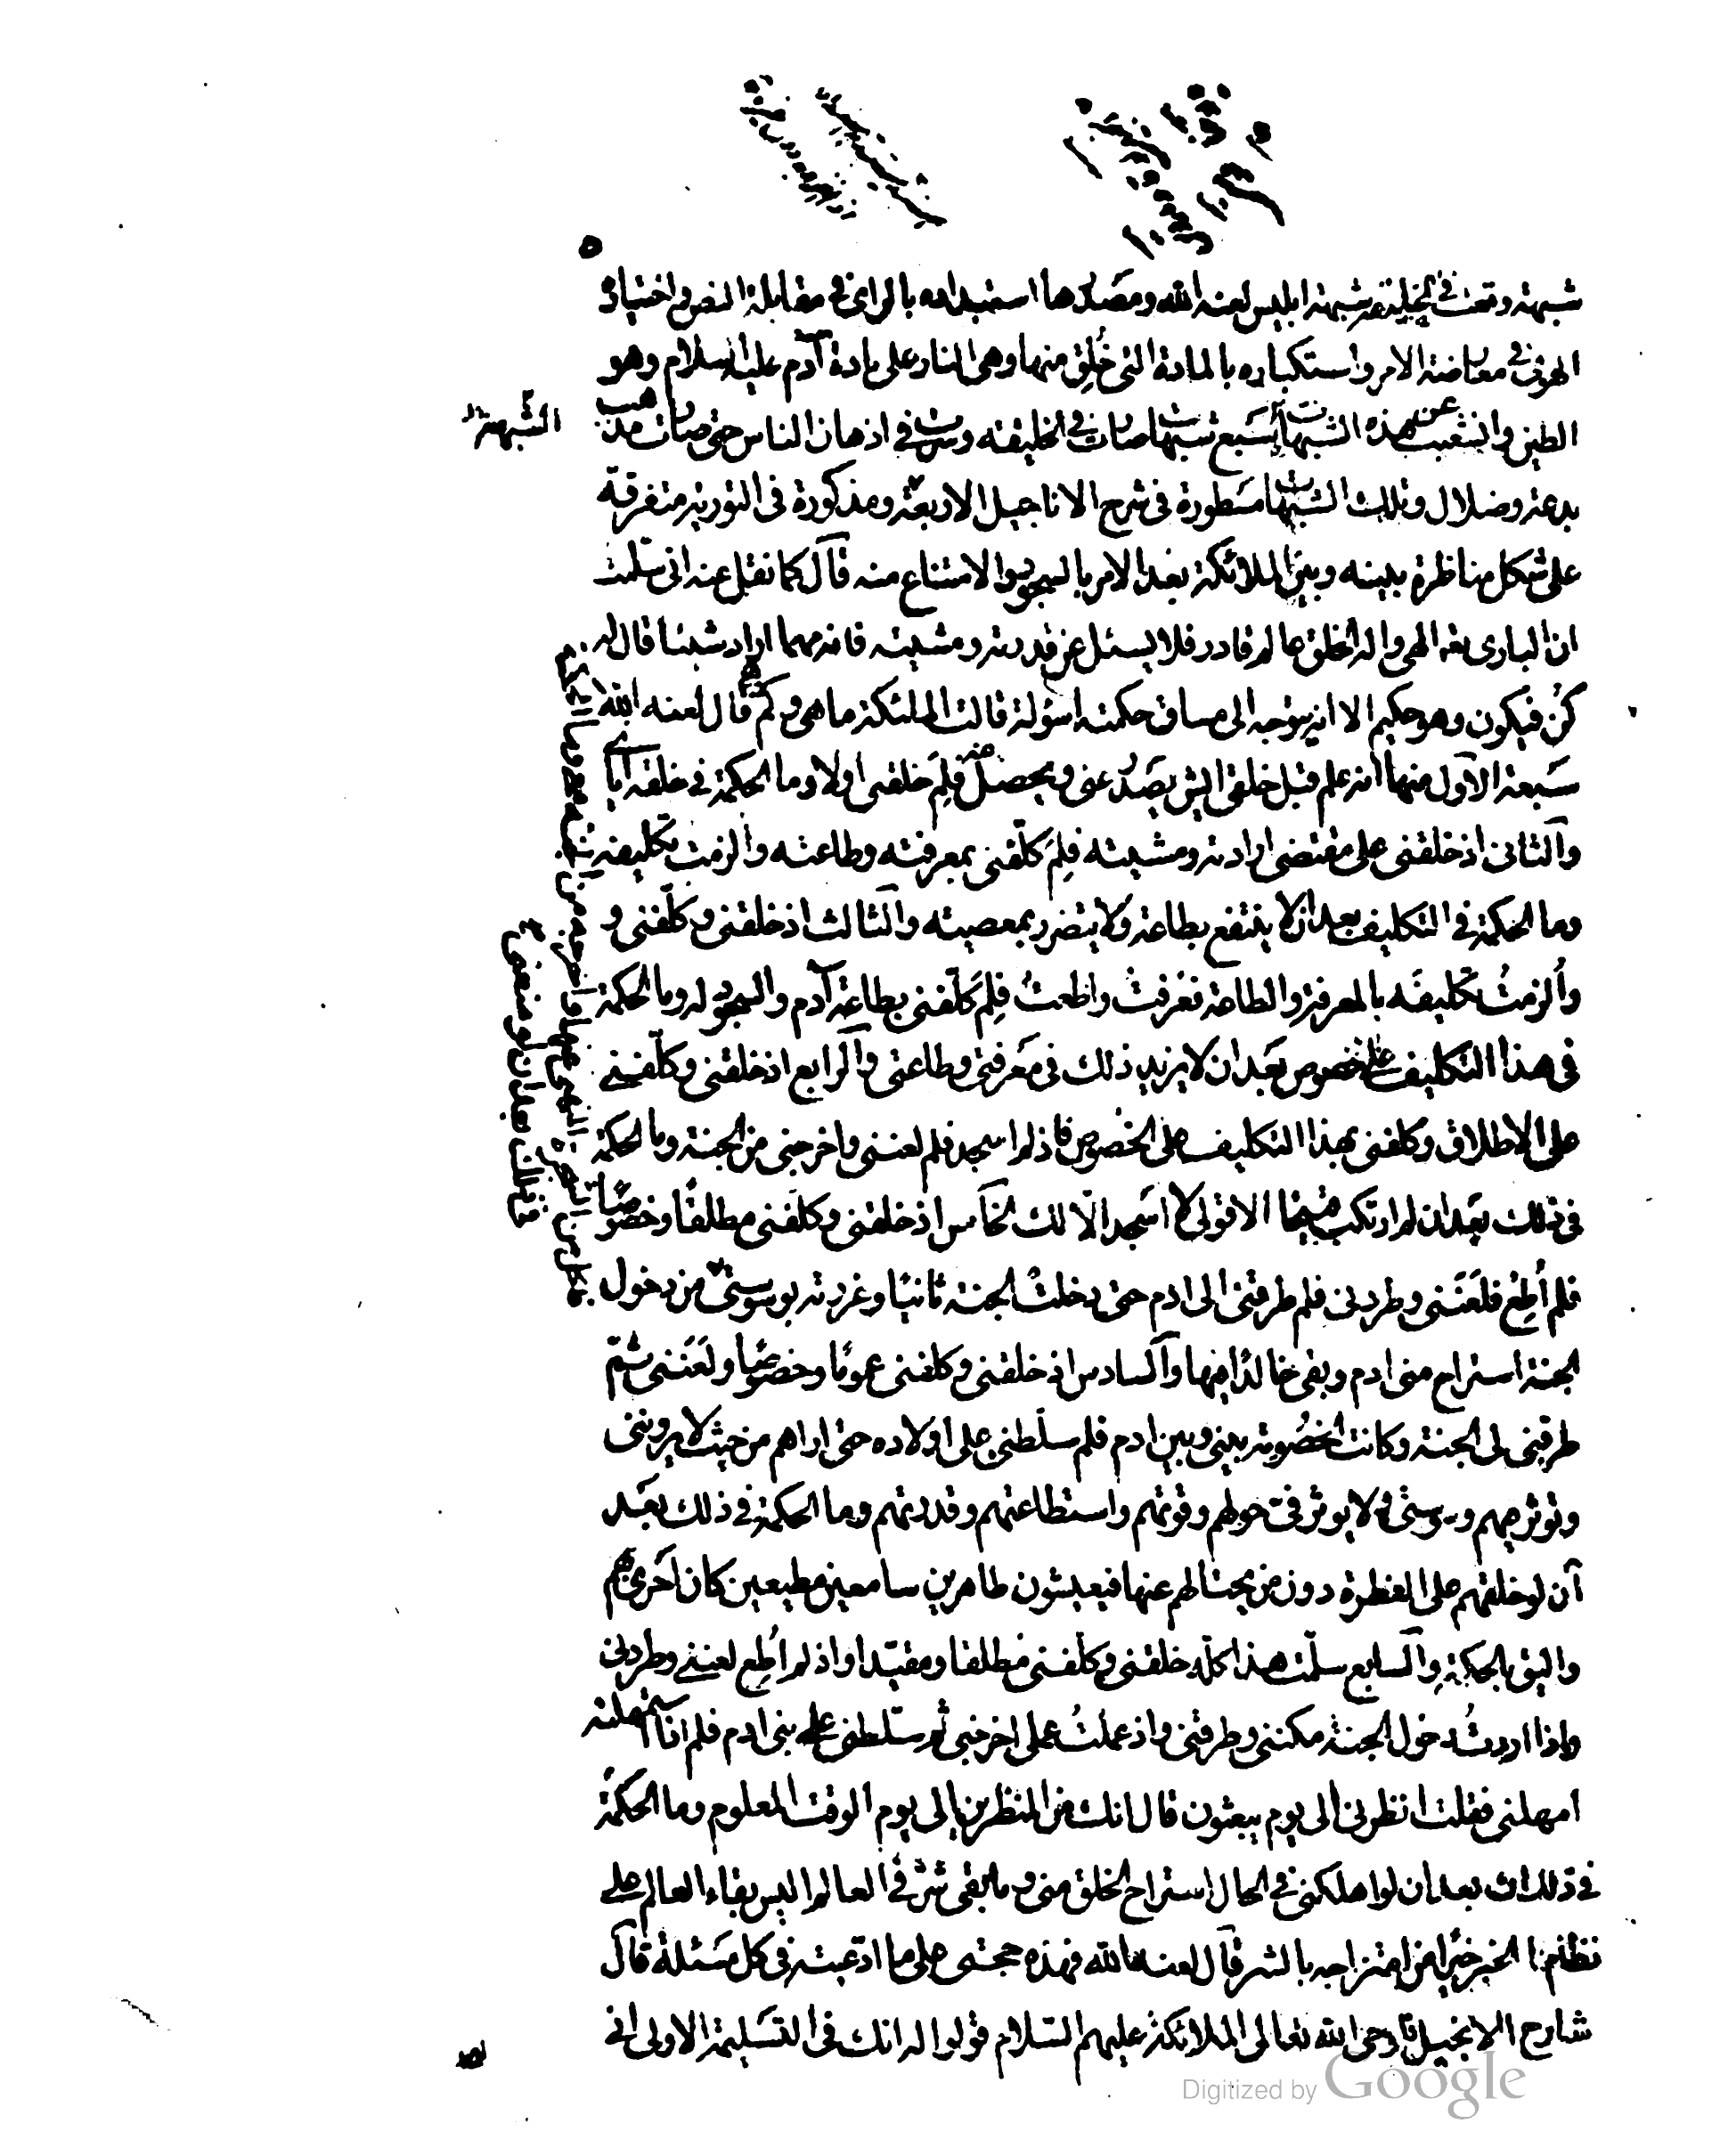 شبهة وقعت في الخليقة شبهة ابليس لعنه الله ومصدرها استبداده بالراى فى مقابلة النص واختياره
الهوى فى معارضة الامر واستكباره بالمادة التى خُلِق منها وهى النار على مادة آدم عليه السلام وهو
الطين وانشعبت عن هذه الشبهات سبع شبهات صارت فى الخليقه وسرت فى اذهان الناس حتى صارت مذاهب
الشبهة
بدعة وضلال وتلك الشبهات مسطورة فى شرح الاناجيل الاربعة ومذكورة فى التورية متفرقة
على شكل مناظرة بينه وبين الملائكة بعد الامر بالسجود والامتناع منه قال كما نقل عنه انى سلّمت
ان البارى تعه الهى واله الخلق عالم قادر فلا يسئل عن قدرته ومشيته فانه مهما اراد شيئا قال له
كُن فيكون وهو حكيم الا انه يتوجه الى مساق حكمته اسؤلة قالت الملئكة ما هى وكم هى قال لعنه الله
سَبعة الاول منها انه علم قبل خلقى ايش يصدُر عنى ويحصل منى فلِمَ خلقنى اولا وما الحكمة فى خلقه اياى
والثانى اذ خلقنى على مقتضى ارادته ومشيته فلِمَ كلّفنى بمعرفته وطاعته والزمت تكليفه
وما الحكمة فى التكليف بعد ان لا ينتفع بطاعة ولا يتضرر بمعصيته والثالث اذ خلقنى وكلّفنى و
وأُلزمتُ تكليفَه بالمعرفة والطاعة فعَرفتُ واطعتُ فلِمَ كَلّفنى بطاعة آدم والسجود له وما الحكمة
فى هذا التكليف على الخصوص بعَد ان لا يزيد ذلك فى مَعرفتى وطاعتى والرابع اذ خلقنى وكلّفنى
على الاطلاق وكلفنى بهذا التكليف على الخصُوص فاذ لم اسجد فلم لعننى واخرجنى من الجنة وما الحكمة
فى ذلك بَعد ان لم ارتكب قبيحًا الا قولى لا اسَجد الّا لك الخامس اذ خلقنى وكلّفنى مطلقًا وخصُوصًا
فلم أُطِع فلَعَنَنى وطردنى فلم طرقنى الى ادم حتى دخلتُ الجنة ثانيًا وغررته بوسوستى من دخول
الجنة استراح منى ادم وبقى خالدًا فيها والسادس اذ خلقنى وكلفنى عمومًا وخصُوصًا ولَعَنَنى ثمّ
طرقنى الى الجنة وكانت الخصُومة بينى وبين ادم فلم سلّطنى على اولاده حتى اراهم من حيث لا يروننى
وتؤثر فيهم وسوستى ولا يوثر فىّ حولهم وقوتهم واستطاعتهم وقدرتهم وما الحكمة فى ذلك بعَد
ان لو خلقهم على الفطرة دون من يحتالهم عنها فيعيشون طاهرين سامعين مطيعين كان احرى بهم
واليق بالحكمةِ والسابع سلّمت هذا كلّه خلقنى وكلّفنى مُطلقا ومقيّدا واذ لم اُطِع لعننى وطردنى
واذا اردتُ دخول الجنة مكننى وطرقنى واذ عملتُ عملى اخرجنى ثم سلّطنى على بنى ادم فلم اذا استمهلته
امهلنى فقلت انظرنى الى يوم يبعثون قال انك من المنظرين الى يوم الوقت المعلوم وما الحكمة
فى ذلك بعد ان لو اهلكنى فى الحال استراح الخلق منى وما بقى شرّ فى العالم اليس بقاء العالم على
نظام الخير خيرًا من امتزاجه بالشر قال لعنه الله فهذه حجتى على ما ادّعيته فى كل مَسَئلة قال
شارح الانجيل فاوحى الله تعالى الى الملائكة عليهم السّلام قولوا له انك فى التسَليمة الاولى انى
Digitized by Google